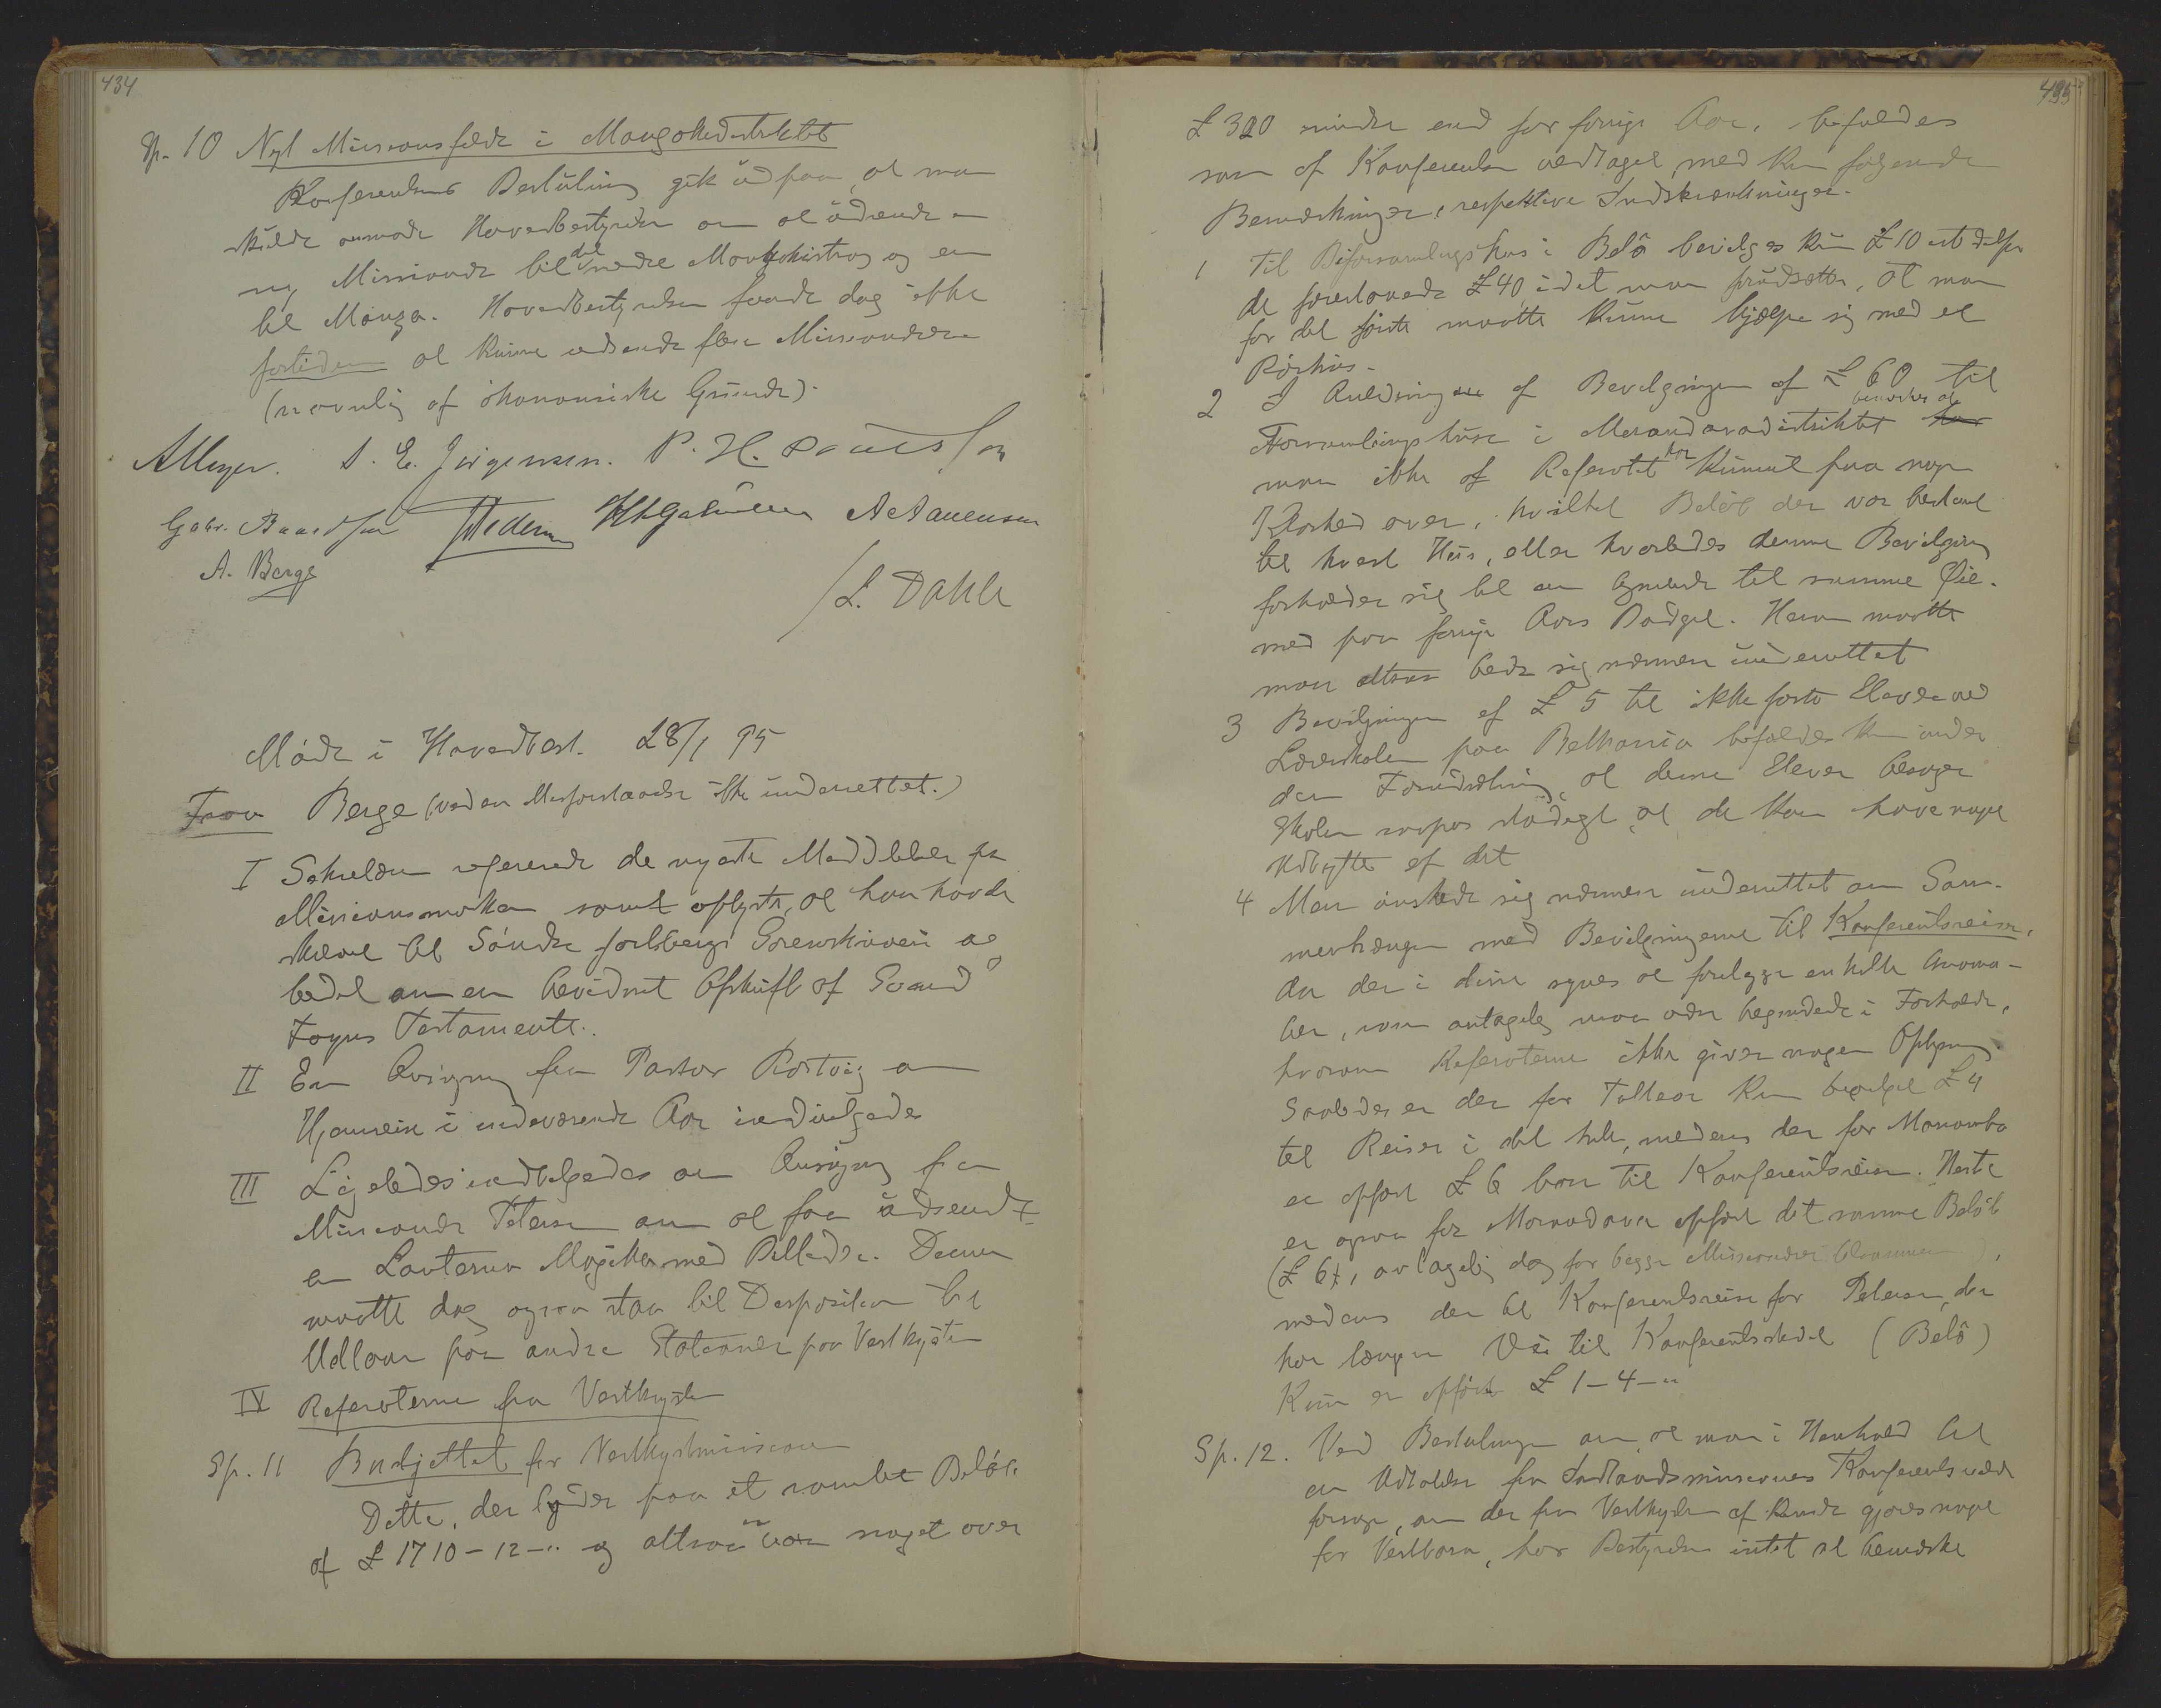 434
Sp. 10 Nyt Missionsfelt i Mangokedistriktet
Konferentsens Beslutning gik ud paa, at man
skulde anmode Hovedbestyrelsen om at udsende en
ny Missionær til det nedre Mangokistrøg og en
til Manza. Hovedbestyrelsen fandt dog ikke
fortiden at kunne udsende flere Missionærer
(navnlig af økonomiske Grunde).
A Meyer. S. E. Jørgensen. P. H. Paulsson
Gabr. Baardsen A Aanensen
A. Berge
L. Dahle
Møde i Hovedbest. 28/1 95
Frav. Berge (ved en Misforstaaelse ikke underrettet.)
I Sekretæren refererede de nyeste Meddelelser fra
Missionsmarken samt oplyste, at han havde
skrevet til Søndre Sorenskriveri og
bedet om en bevidnet Afskrift af Svend
Foyns Testamente.
II En Ansøgning fra Pastor Rostvig om
Hjemreise i indeværende Aar indvilgedes
III Ligeledes indvilgedes en Ansøgning fra
Missionær Petersen om at faa udsendt
en Lanterna Magika med Billeder. Denne
maatte dog ogsaa staa til Disposition til
Udlaan for andre Stationer paa Vestkysten
IV Referaterne fra Vestkysten
Sp. 11 Budjettet for Vestkystmissionen
Dette, der lyder paa et samlet Beløb
af £ 1710-12-" og altsaa er noget over
435
£ 320 mindre end for forrige Aar, befaldes
som af Konferentsen vedtaget, med kun følgende
Bemærkninger, respektive Indskrænkninger.
1 Til Biforsamlingshus i Belo bevilges kun £ 10 istedetfor
de foreslaaede £ 40, idet man forudsætter, at man
for det første maatte kunne hjælpe sig med et
Rørhus.
2 I Anledningen af Bevilgningen af £ 60 til
Forsamlingshuse i Morandavadistriktet bemærkes at
man ikke af Referatet har kunnet faa nogen
Klarhed over, hvilket Beløb der var bestemt
til hvert Hus, eller hvorledes denne Bevilgning
forholder sig til en lignende til samme Øie-
med paa forrige Aars Budget. Herom maatte
man altsaa bede sig nærmere underrettet
3 Bevilgningen af £ 5 til ikke faste Elever ved
Lærerskolen paa Bethania befaldes kun under
den Forudsætning, at denne Elever besøger
Skolen saapas stadigt, at de kan have noget
Udbytte af det
4 Man ønskede sig nærmere underrettet om Sam-
menhængen med Bevilgningerne til Konferentsreiser,
da der i disse synes at foreligge enkelte Anoma-
lier, som antagelig maa være begrundede i Forholde,
hvorom Referaterne ikke giver nogen Oplysning.
Saaledes er der for Tullear kun bevilget £ 4
til Reiser i det hele, medens der for Manombo
er opført £ 6 bare til Konferentsreiser. Herti
er ogsaa for Morondava opført det samme Beløb
(£ 6), antagelig dog for begge Missionærer tilsammen,
medens der til Konferentsreise for Petersen, der
har længere Vei til Konferentsstedet (Belo)
Kun er opført £ 1-4-"
Sp. 12. Ved Beslutningen om, at man i Henhold til
en Udtalelse fra Indlandsmissionens Konferents vilde
forsøge, om der fra Vestkysten af kunde gjøres noget
for Vestbara, har Bestyrelsen intet at bemærke